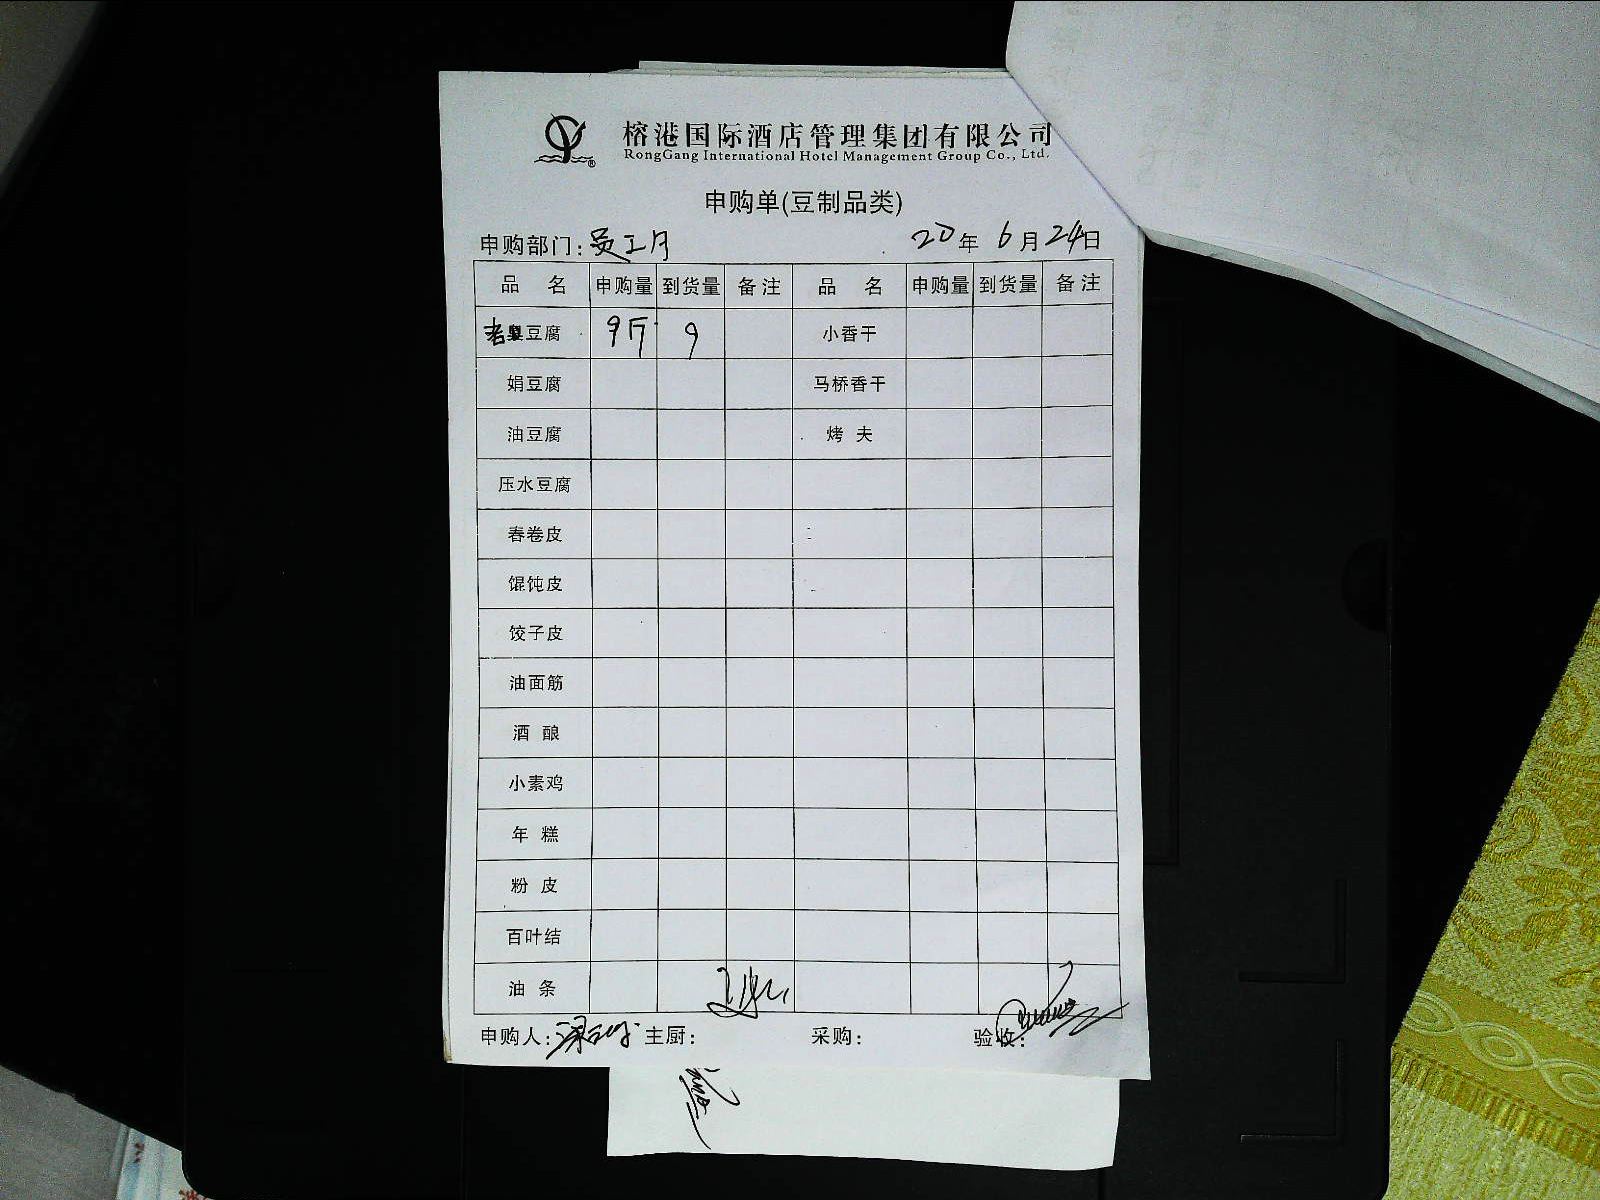 榕港国际酒店管理集团有限公司
RongGang International Hotel Management Group Co., Ltd.
申购单(豆制品类)
申购部门: 员工 20年 6月 24日
品 名 申购量 到货量 备注 品 名 申购量 到货量 备注
老豆腐 9斤 9 小香干
娟豆腐 马桥香干
油豆腐 烤 夫
压水豆腐
春卷皮
馄饨皮
饺子皮
油面筋
酒 酿
小素鸡
年 糕
粉 皮
百叶结
油 条
申购人: 主厨: 采购: 验收: